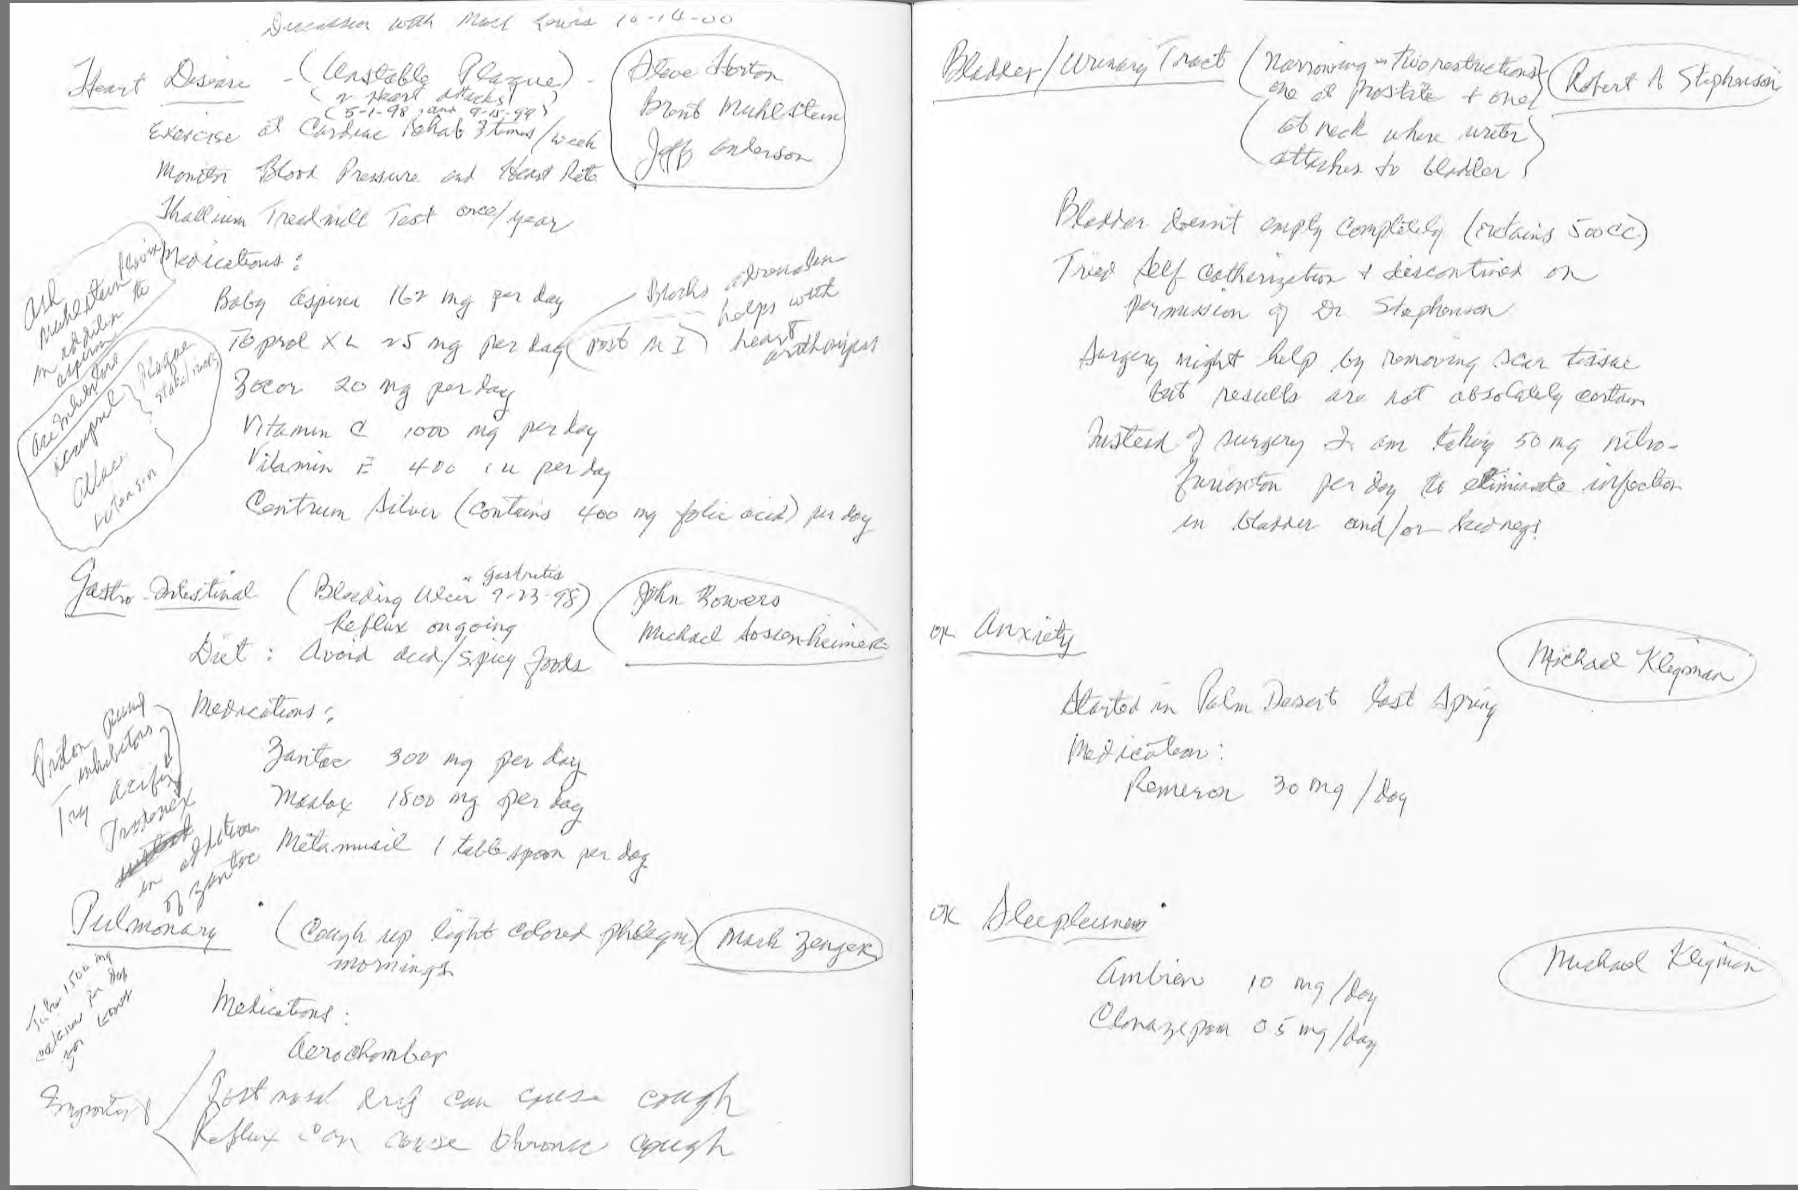 Discussion with Mark Lewis 10-14-00
Heart Disease - (Unstable Plaque) -
(2 heart attacks)
(5-1-98 and 9-15-99)
Steve Horton
Brent Muhlstein
Jeff Anderson
Exercise at Cardiac Rehab 3 times/week
Monitor Blood Pressure and Heart Rate
Thallium Treadmill Test once/year
Ask
Muhlestein Plavix
in addition to
aspirin
Ace Inhibitors
accupril
Plaque
stabilizers
Altace
Medications:
Baby aspirin 162 mg per day
Toprol XL 25 mg per day (post MI)
Blocks adrenalin
helps with
heart
Zocor 20 mg per day
Vitamin C 1000 mg per day
Vitamin E 400 iu per day
Centrum Silver (contains 400 mg folic acid) per day
Gastro-Intestinal (Bleeding Ulcer 9-23-98)
gastritis
Reflux ongoing
John Bowers
Michael
Diet: Avoid acid/spicy foods
Proton pump
inhibitors
Try acifex
Protonex
in addition
of zantac
Medications:
Zantac 300 mg per day
Maalox 1800 mg per day
Metamusil 1 tablespoon per day
Pulmonary (Cough up light colored phlegm)
mornings
Mark Zenger
Take 1500 mg
calcium per day
for
Medications:
Aerochamber
Post nasal drip can cause cough
Reflux can cause chronic cough
Bladder/Urinary Tract (Narrowing - Two restrictions)
one at prostate + one
at neck where ureter
attaches to bladder
Robert A Stephenson
Bladder doesn't empty completely (retains 500cc)
Tried Self Catherization & discontined on
permission of Dr. Stephenson
Surgery might help by removing scar tissue
but results are not absolutely certain
Instead of surgery I am taking 50 mg nitro-
furonton per day to eliminate infection
in bladder and/or kidneys
OK Anxiety
Michael Kligman
Started in Palm Desert last Spring
Medication:
Remeron 30 mg/day
OK Sleeplessness
Michael Kligman
Ambien 10 mg/day
Clonazepam 0.5 mg/day